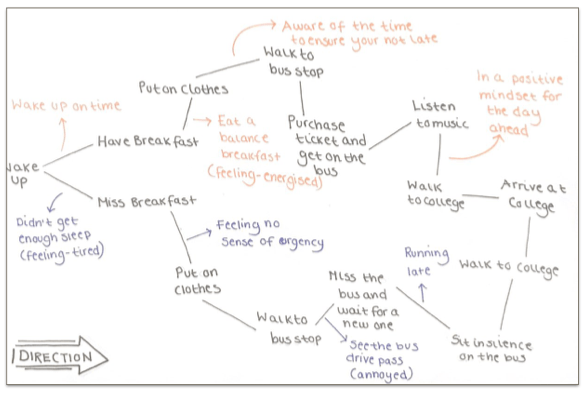 Aware of the time
to ensure your not late
Walk to
bus stop
Put on clothes
Wake up on time
In a positive
mindset for
the day
ahead
Listen
to music
Purchase
ticket and
get on the
bus
Have Breakfast
Eat a
balance
breakfast
(feeling-energised)
Wake
up
Miss Breakfast
Walk
to college
Arrive at
College
Didn't get
enough sleep
(feeling-tired)
Feeling no
sense of urgency
Put on
clothes
Running
late
Walk to college
Miss the
bus and
wait for a
new one
Walk to
bus stop
See the bus
drive pass
(annoyed)
Sit in silence
on the bus
DIRECTION